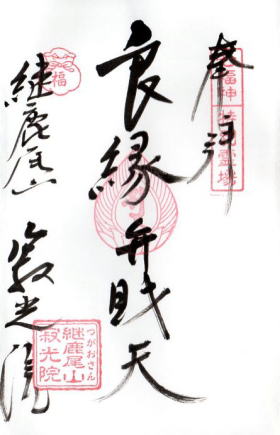 奉拝
良縁弁財天
継鹿尾山 寂光院
福
つがおさん
継鹿尾山
寂光院